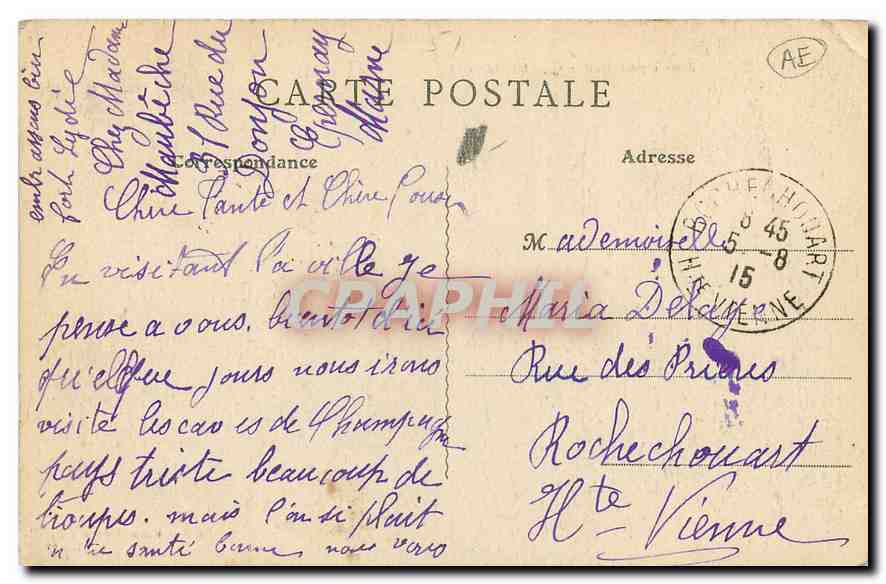 CARTE POSTALE
Correspondance
Adresse
AE
Chère Tante et Chère Cousi
En visitant la ville je
pense a vous. bientot d'ici
quelque jours nous irons
visité les caves de Champagne
pays triste beaucoup de
troupes. mais l'on si plait
santé bonne nous vous
embrassons bien
fort Lydie
Chez Madame
Maubêche
Rue du
Donjon
Epernay
Marne
Mademoiselle
Maria Delaye
Rue des Prieres
Rochechouart
Hte Vienne
ROCHECHOUART
8 45
5 -8
15
HTE VIENNE
CPARAMA